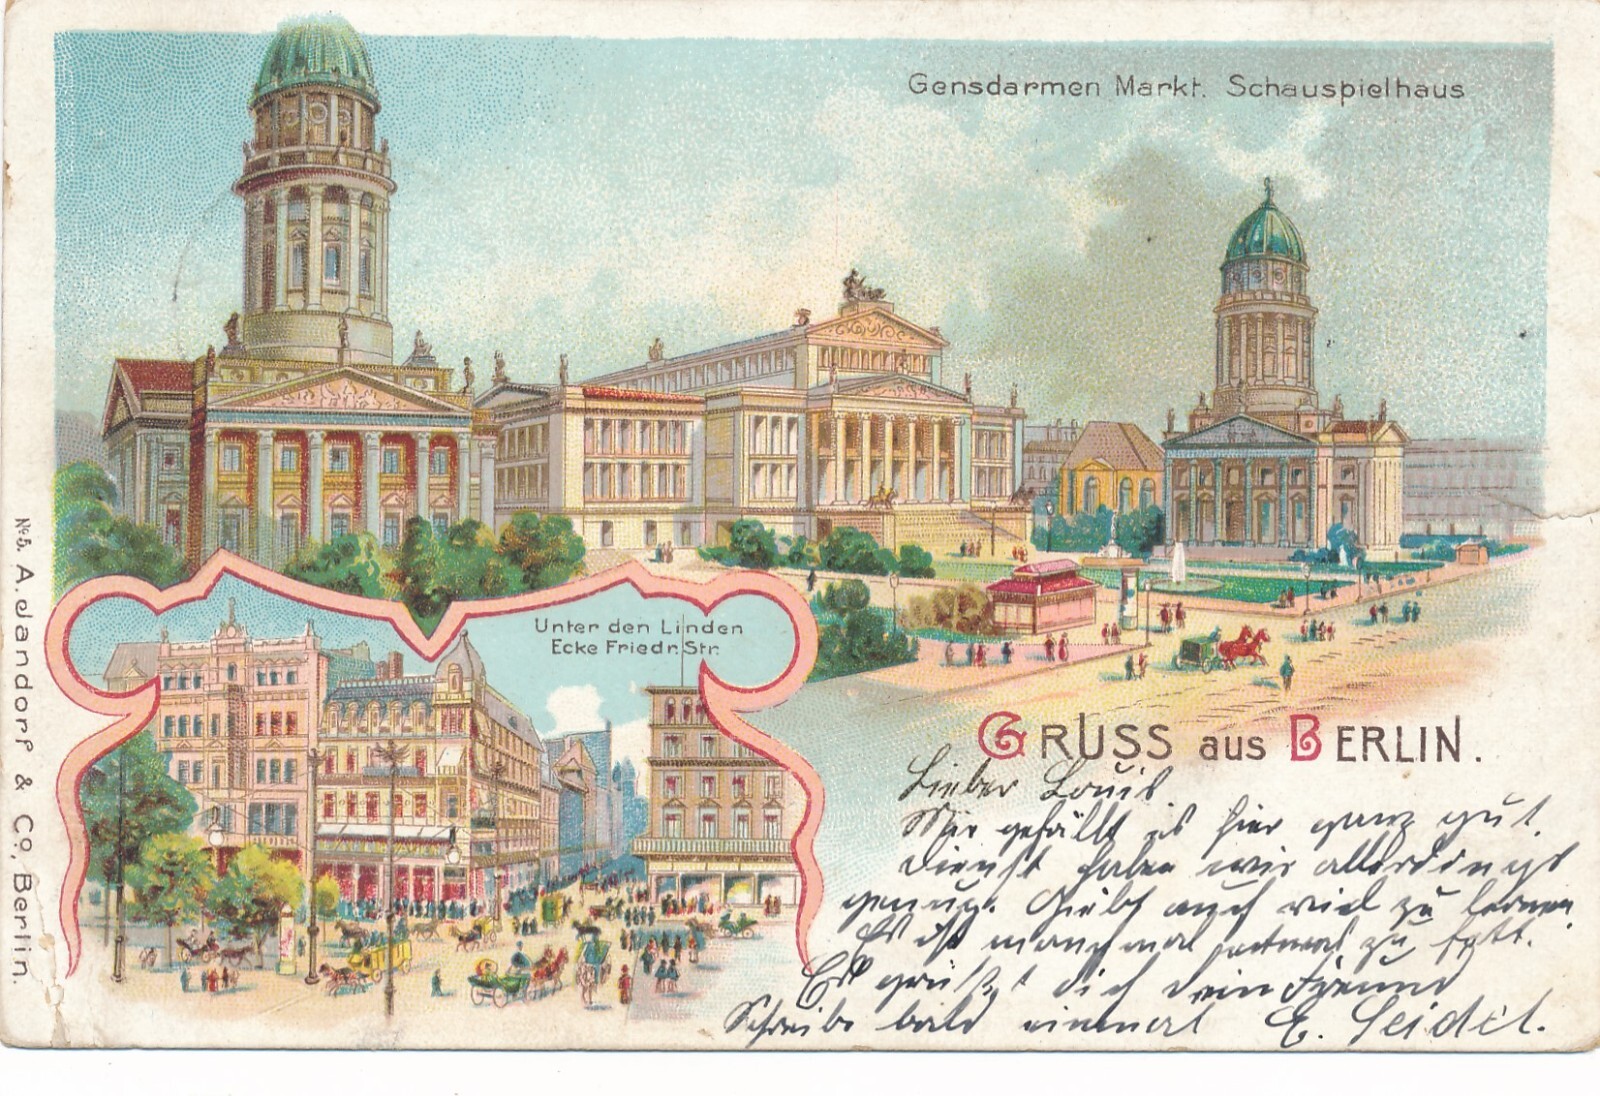 Gensdarmen Markt. Schauspielhaus
Unter den Linden
Ecke Friedr. Str.
GRUSS aus BERLIN.
Lieber Louis
Mir gefällt es hier ganz gut.
Dienst haben wir allerdings
genug. Giebt auch viel zu lernen.
Es ist manchmal zu fett.
Es grüßt dich dein Freund
Schreibe bald einmal E. Seidel.
No. 5. A. Jandorf & Co, Berlin.